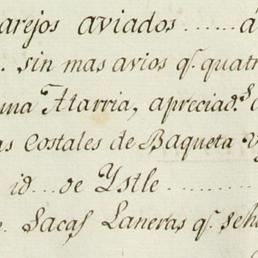 arejos aviados ...... á
. sin mas avios q.ͤ quatr
una Atarria, apreciad.ˢ
as Costales de Baqueta v
id... de Ystle .........
. Sacas Laneras q.ͤ se h